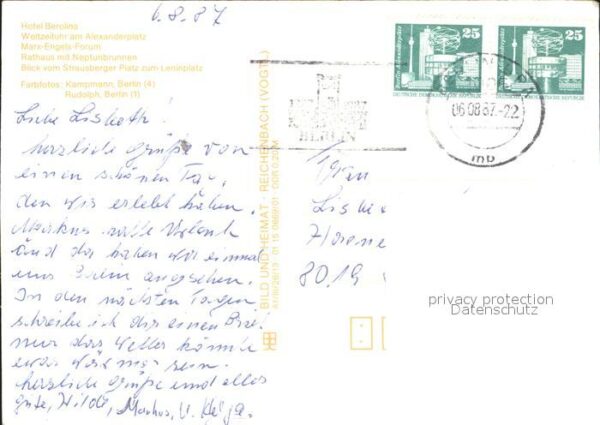 6.8.87
Hotel Berolina
Weltzeituhr am Alexanderplatz
Marx-Engels-Forum
Rathaus mit Neptunbrunnen
Blick vom Strausberger Platz zum Leninplatz
Farbfotos: Kampmann, Berlin (4)
Rudolph, Berlin (1)
Liebe Lisbeth!
herzliche Grüße von
einen schönen Tag,
den wir erlebt haben.
Markus hatte Urlaub
und da haben wir einmal
uns Berlin angesehen.
In den nächsten Tagen
schreibe ich dir einen Brief
nur das Wetter könnte
etwas wärmer sein.
herzliche Grüße und alles
gute, Markus, u.
BILD UND HEIMAT · REICHENBACH (VOGTL)
BERLIN
06.08.87-22
mb
25
25
DEUTSCHE DEMOKRATISCHE REPUBLIK
Frau
Lisbe
8019
privacy protection
Datenschutz